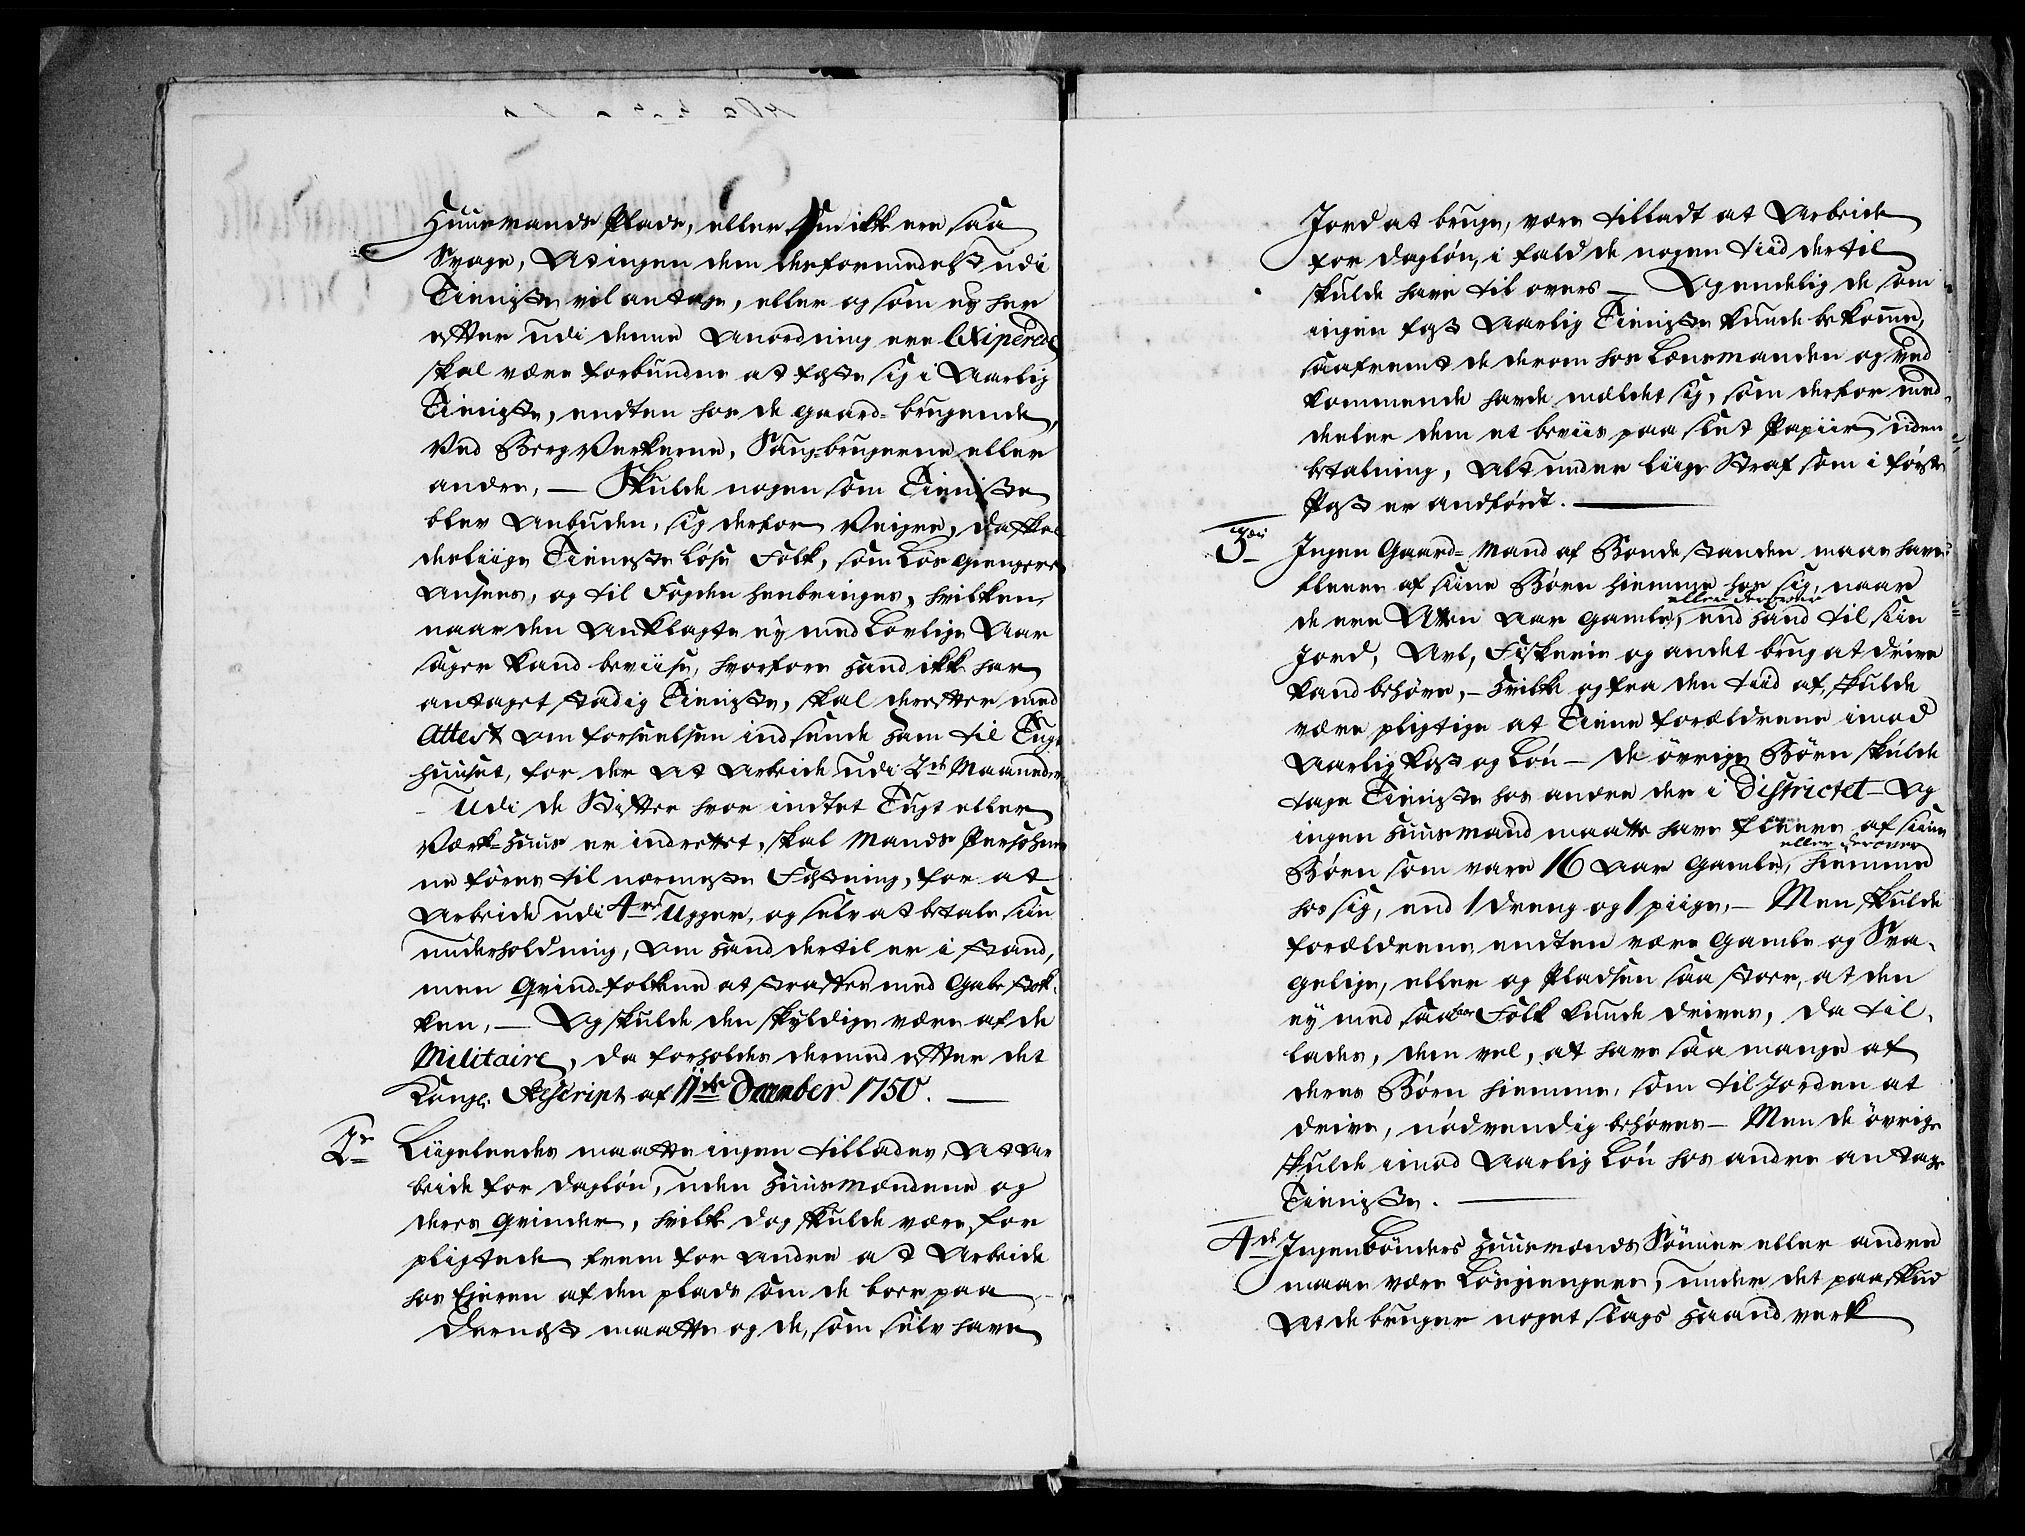 Huusmands Plads, eller som ikke ere saa
Svage, At ingen dem desformedelst udi
Tieniste vil antage, eller og som ey her
efter udi denne Anordning ere Exiperede
skal være forbunden at feste sig i Aarlig
Tieniste, endten hos de gaard-brugende,
Ved Berg Verkerne, Saug-brugerne eller
andre, — Skulde nogen som Tieniste
blev Anbuden, sig derfor Veigre, da skal
desliige Tieneste løse Folk, som Løsgiengere
Ansees, og til Fogden henbringes, hvilken,
naar den Anklagte ey med Lovlige Aar
sager kand beviise, hvorfore hand ikke har
antaget stadig Tieniste, skal derefter med
Attest om forseelsen indsende ham til Tugt
huuset, for der at Arbeide udi 2de Maaneder
— Udi de Stifter hvor indtet Tugt eller
Værk-Huus er indrettet, skal Mands Persohner
ne føres til nærmeste Festning, for at
Arbeide udi 4re Ugger, og selv at betale sin
underholdning, om hand dertil er i stand,
men Qvind-folkene at straffes med Gabestok-
ken, — Og skulde den skyldige være af de
Militaire, da forholdes dermed efter det
Kongl. Rescript af 11te December 1750. —
2de Liigeleedes maatte ingen tillades, At Ar
beide for dagløn, uden Huusmændene og
deres Qvinder, hvilke dog skulde være for
pligtede frem for andre at Arbeide
hos Ejeren af den plads som de boer paa
Dernest maatte og de, som selv have
Jord at bruge, være tilladt at Arbeide
for dagløn, i fald de nogen tiid dertil
skulde have til overs — Og endelig de som
ingen fast Aarlig Tieniste kunde bekomme,
saafremt de derom hos Lensmanden og ved
kommende havde meldet sig, som derfor med-
deeler dem et beviis paa slet Papiir uden
betalning, Alt under liige Straf som i første
Post er andført. —
3die Ingen Gaard-Mand af Bonde standen maae have
fleere af siine Børn hiemme hos sig, naar
eller derover
de ere Atten Aar gamle, end hand til siin
Jord, Avl, Fiskerie og andet brug at drive
kand behøve, — Hvilke og fra den tiid af, skulde
være pligtige at Tiene forældrene imod
Aarlig kost og Løn — de øvrige Børn skulde
tage Tieniste hos andre der i Districtet — Og
ingen Huusmand maatte have fleere af siine
eller derover
Børn som vare 16 Aar gamle, hiemme
hos sig, end 1 dreng og 1 piige, — Men skulde
forældrene endten være gamle og Sva-
gelige, eller og Pladsen saa stor, at den
ey med saa faa Folk kunde drives, da til-
lades, dem vel, at have saa mange af
deres Børn hiemme, som til Jorden at
drive, nødvendig behøves — Men de øvrige
skulde imod Aarlig Løn hos andre antage
Tieniste. —
4de Ingen bønders Huusmænds Sønner eller andre
maae være Løsgiengere, under det paaskud
At de bruger noget slags Haandverk